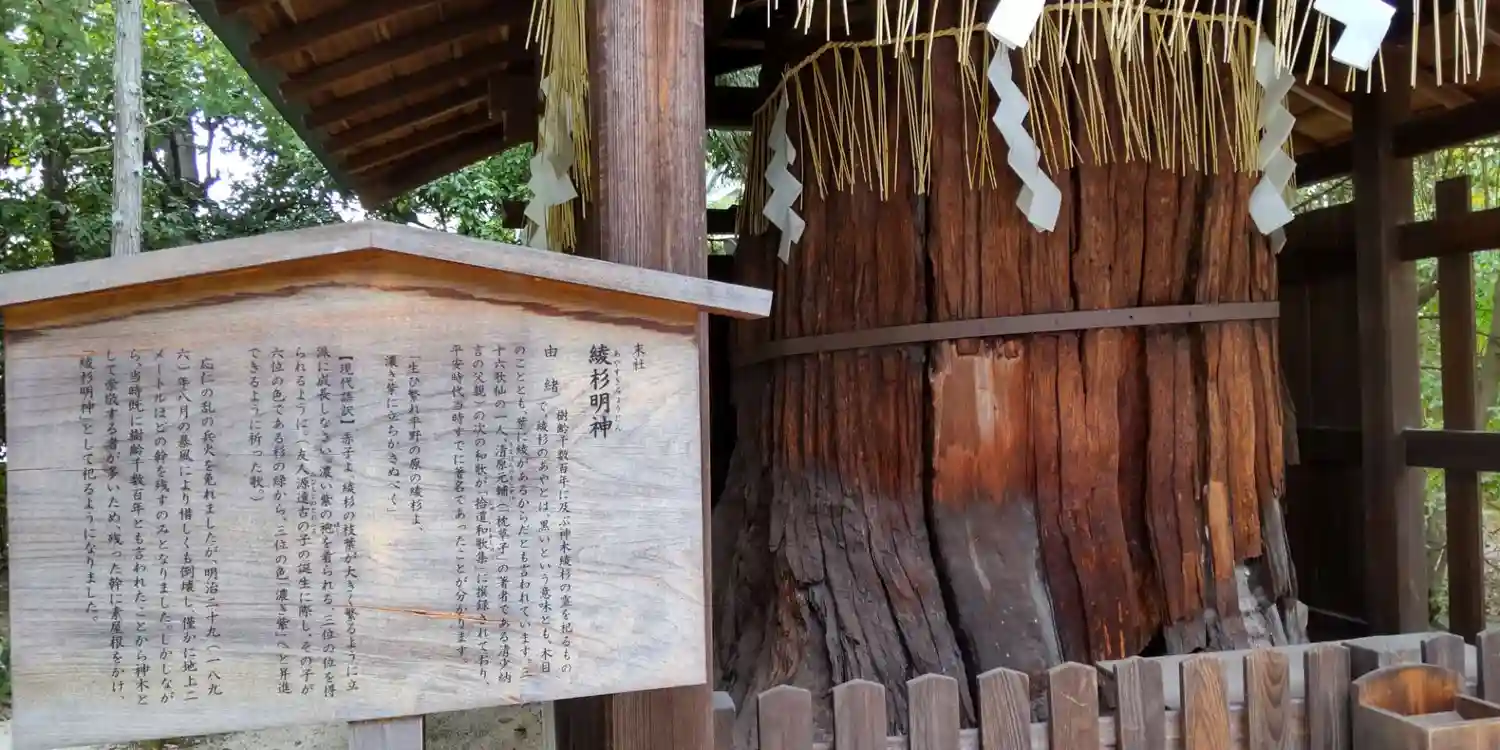 末社
あやすぎみょうじん
綾杉明神
由緒
樹齢千数百年に及ぶ神木綾杉の霊を祀るもの
で、綾杉のあやとは、黒いという意味とも、木目
のこととも、葉に綾があるからだとも言われています。三
十六歌仙の一人、清原元輔(「枕草子」の著者である清少納
言の父親)の次の和歌が「拾遺和歌集」に撰録されており、
平安時代当時すでに著名であったことが分かります。
「生ひ繁れ平野の原の綾杉よ、
濃き紫に立ちかさぬべく」
【現代語訳】赤子よ、綾杉の枝葉が大きく繁るように立
派に成長しなさい。濃い紫の袍を着られる、三位の位を得
られるように(友人源遠古の子の誕生に際し、その子が
六位の色である杉の緑から、三位の色「濃き紫」へと昇進
できるように祈った歌。)
応仁の乱の兵火を免れましたが、明治二十九(一八九
六)年八月の暴風により惜しくも倒壊し、僅かに地上二
メートルほどの幹を残すのみとなりました。しかしなが
ら、当時既に樹齢千数百年とも言われたことから神木と
して崇敬する者が多いため、残った幹に素屋根をかけ、
「綾杉明神」として祀るようになりました。